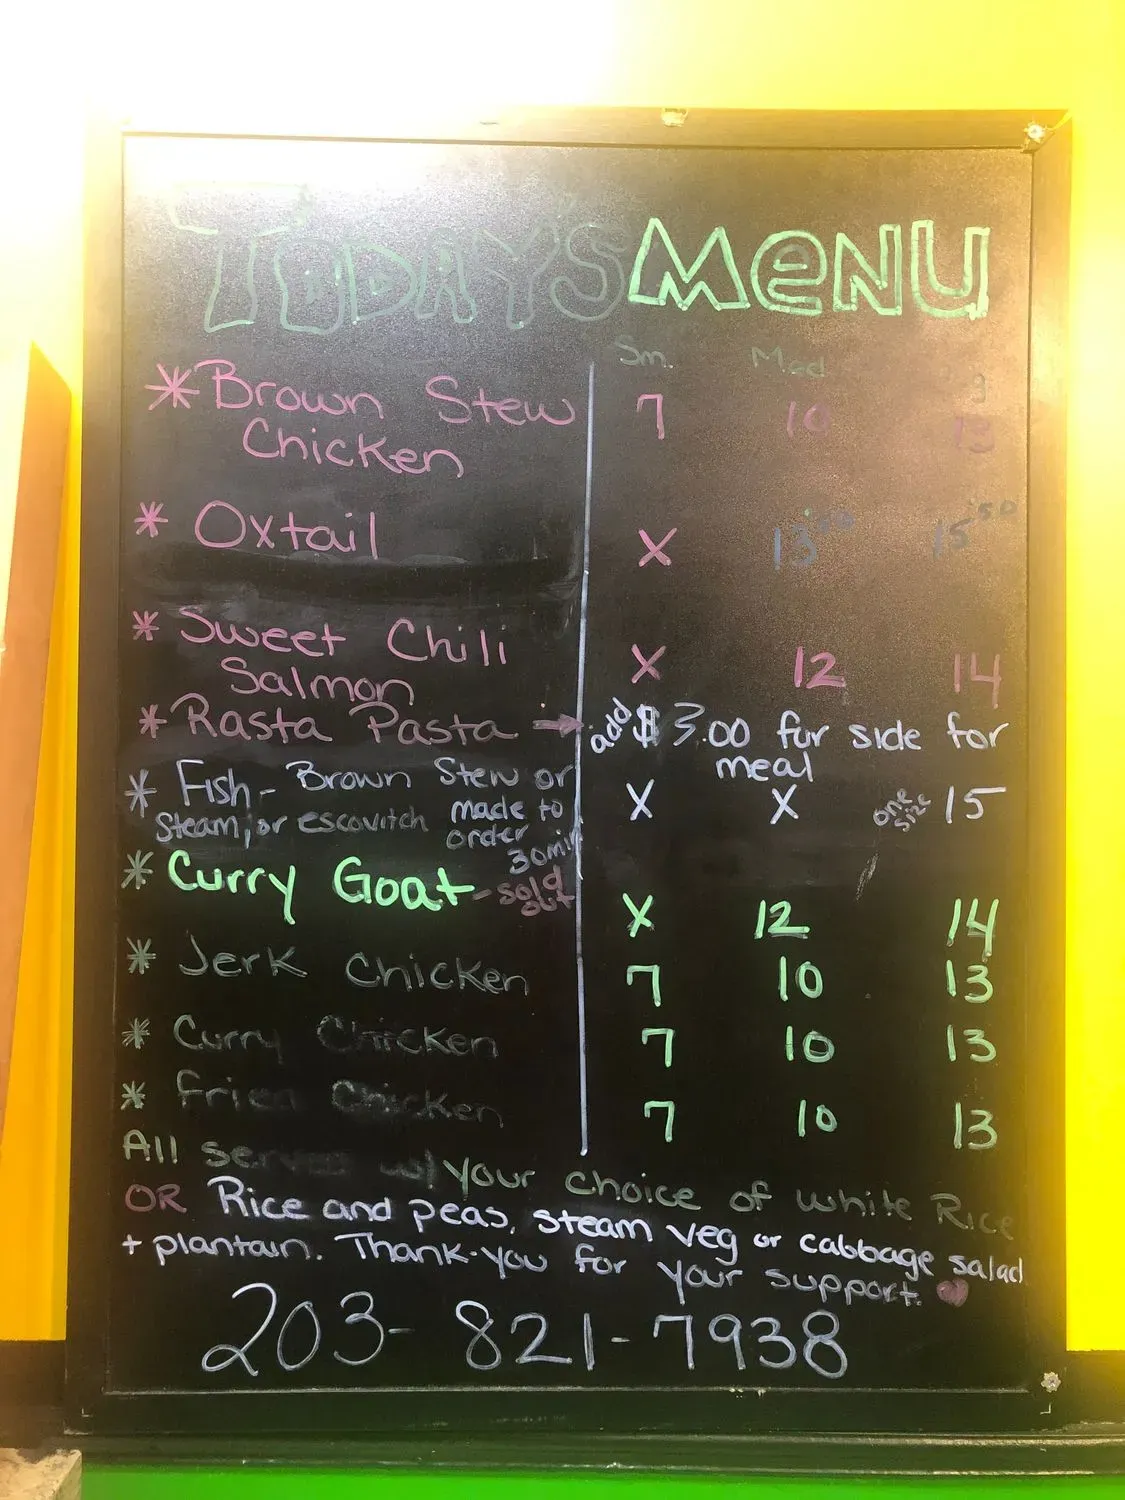 TODAY'S MENU
Sm. Med
* Brown Stew 7 10 13
Chicken
* Oxtail X 13.50 15.50
* Sweet Chili X 12 14
Salmon
* Rasta Pasta → add $3.00 for side for
meal
* Fish - Brown Stew or X X one size 15
Steam, or escovitch made to
order
30min
* Curry Goat - sold out X 12 14
* Jerk Chicken 7 10 13
* Curry Chicken 7 10 13
* Fried Chicken 7 10 13
All served w/ your choice of white Rice
OR Rice and peas, steam veg or cabbage salad
+ plantain. Thank-you for your support. ♥
203-821-7938